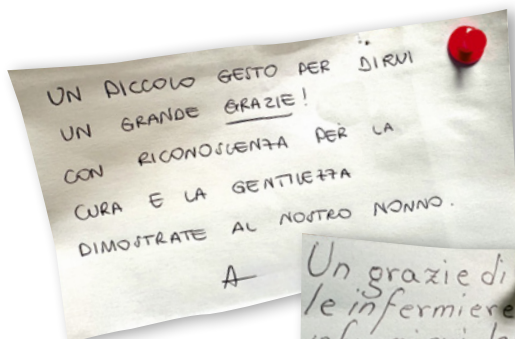 UN PICCOLO GESTO PER DIRVI
UN GRANDE GRAZIE!
CON RICONOSCENZA PER LA
CURA E LA GENTILEZZA
DIMOSTRATE AL NOSTRO NONNO.
A
Un grazie di
le infermiere